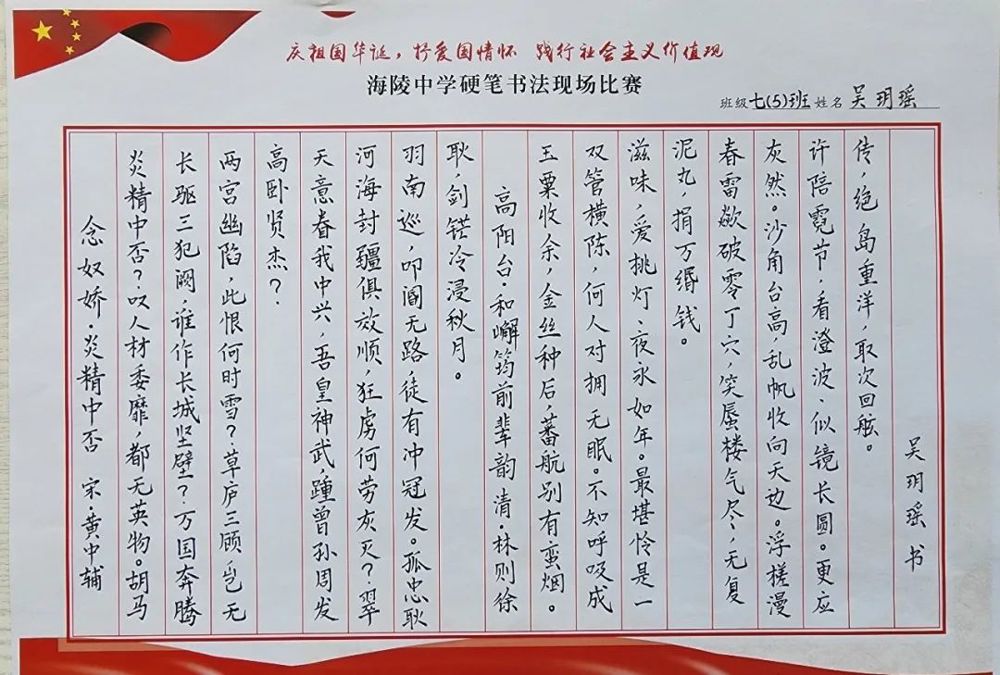 庆祖国华诞，抒爱国情怀 践行社会主义价值观
海陵中学硬笔书法现场比赛
班级 七(5)班 姓名 吴玥瑶
念奴娇·炎精中否 宋·黄中辅
炎精中否？叹人材委靡，都无英物。胡马
长驱三犯阙，谁作长城坚壁？万国奔腾
两宫幽陷，此恨何时雪？草庐三顾，岂无
高卧贤杰？
天意眷我中兴，吾皇神武，踵曾孙周发
河海封疆俱效顺，狂虏何劳灰灭？翠
羽南巡，叩阍无路，徒有冲冠发。孤忠耿
耿，剑铓冷浸秋月。
高阳台·和嶰筠前辈韵 清·林则徐
玉粟收余，金丝种后，蕃航别有蛮烟。
双管横陈，何人对拥无眠。不知呼吸成
滋味，爱挑灯、夜永如年。最堪怜是一
泥丸，捐万缗钱。
春雷欻破零丁穴，笑蜃楼气尽，无复
灰然。沙角台高，乱帆收向天边。浮槎漫
许陪霓节，看澄波、似镜长圆。更应
传，绝岛重洋，取次回舷。
吴玥瑶 书